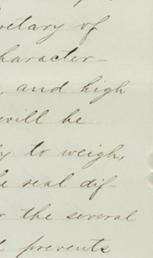 retary of
haracter-
, and high
will be
y to weigh,
e seal dif-
r the several
l prevents